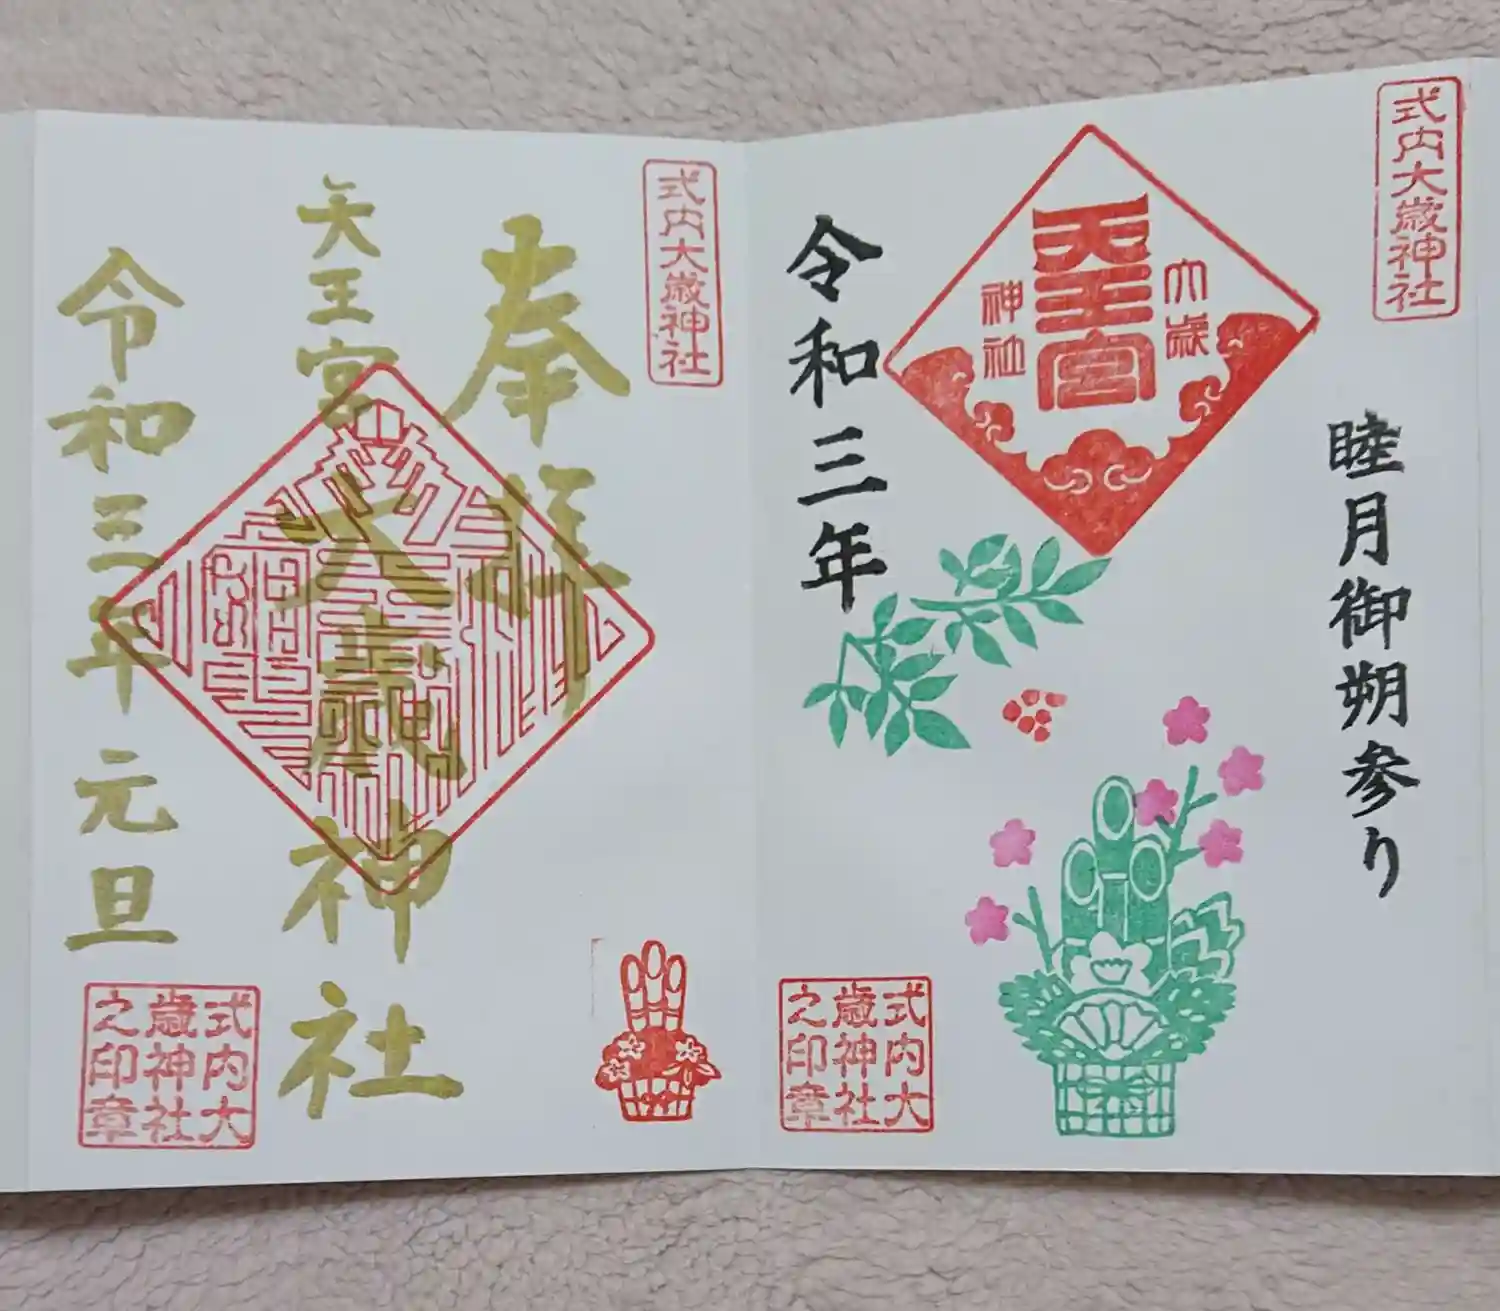 式内大歳神社
睦月御朔参り
大歳
天王宮
神社
令和三年
式内大
歳神社
之印章
式内大歳神社
奉拝
天王宮
大歳神社
令和三年 元旦
式内大
歳神社
之印章